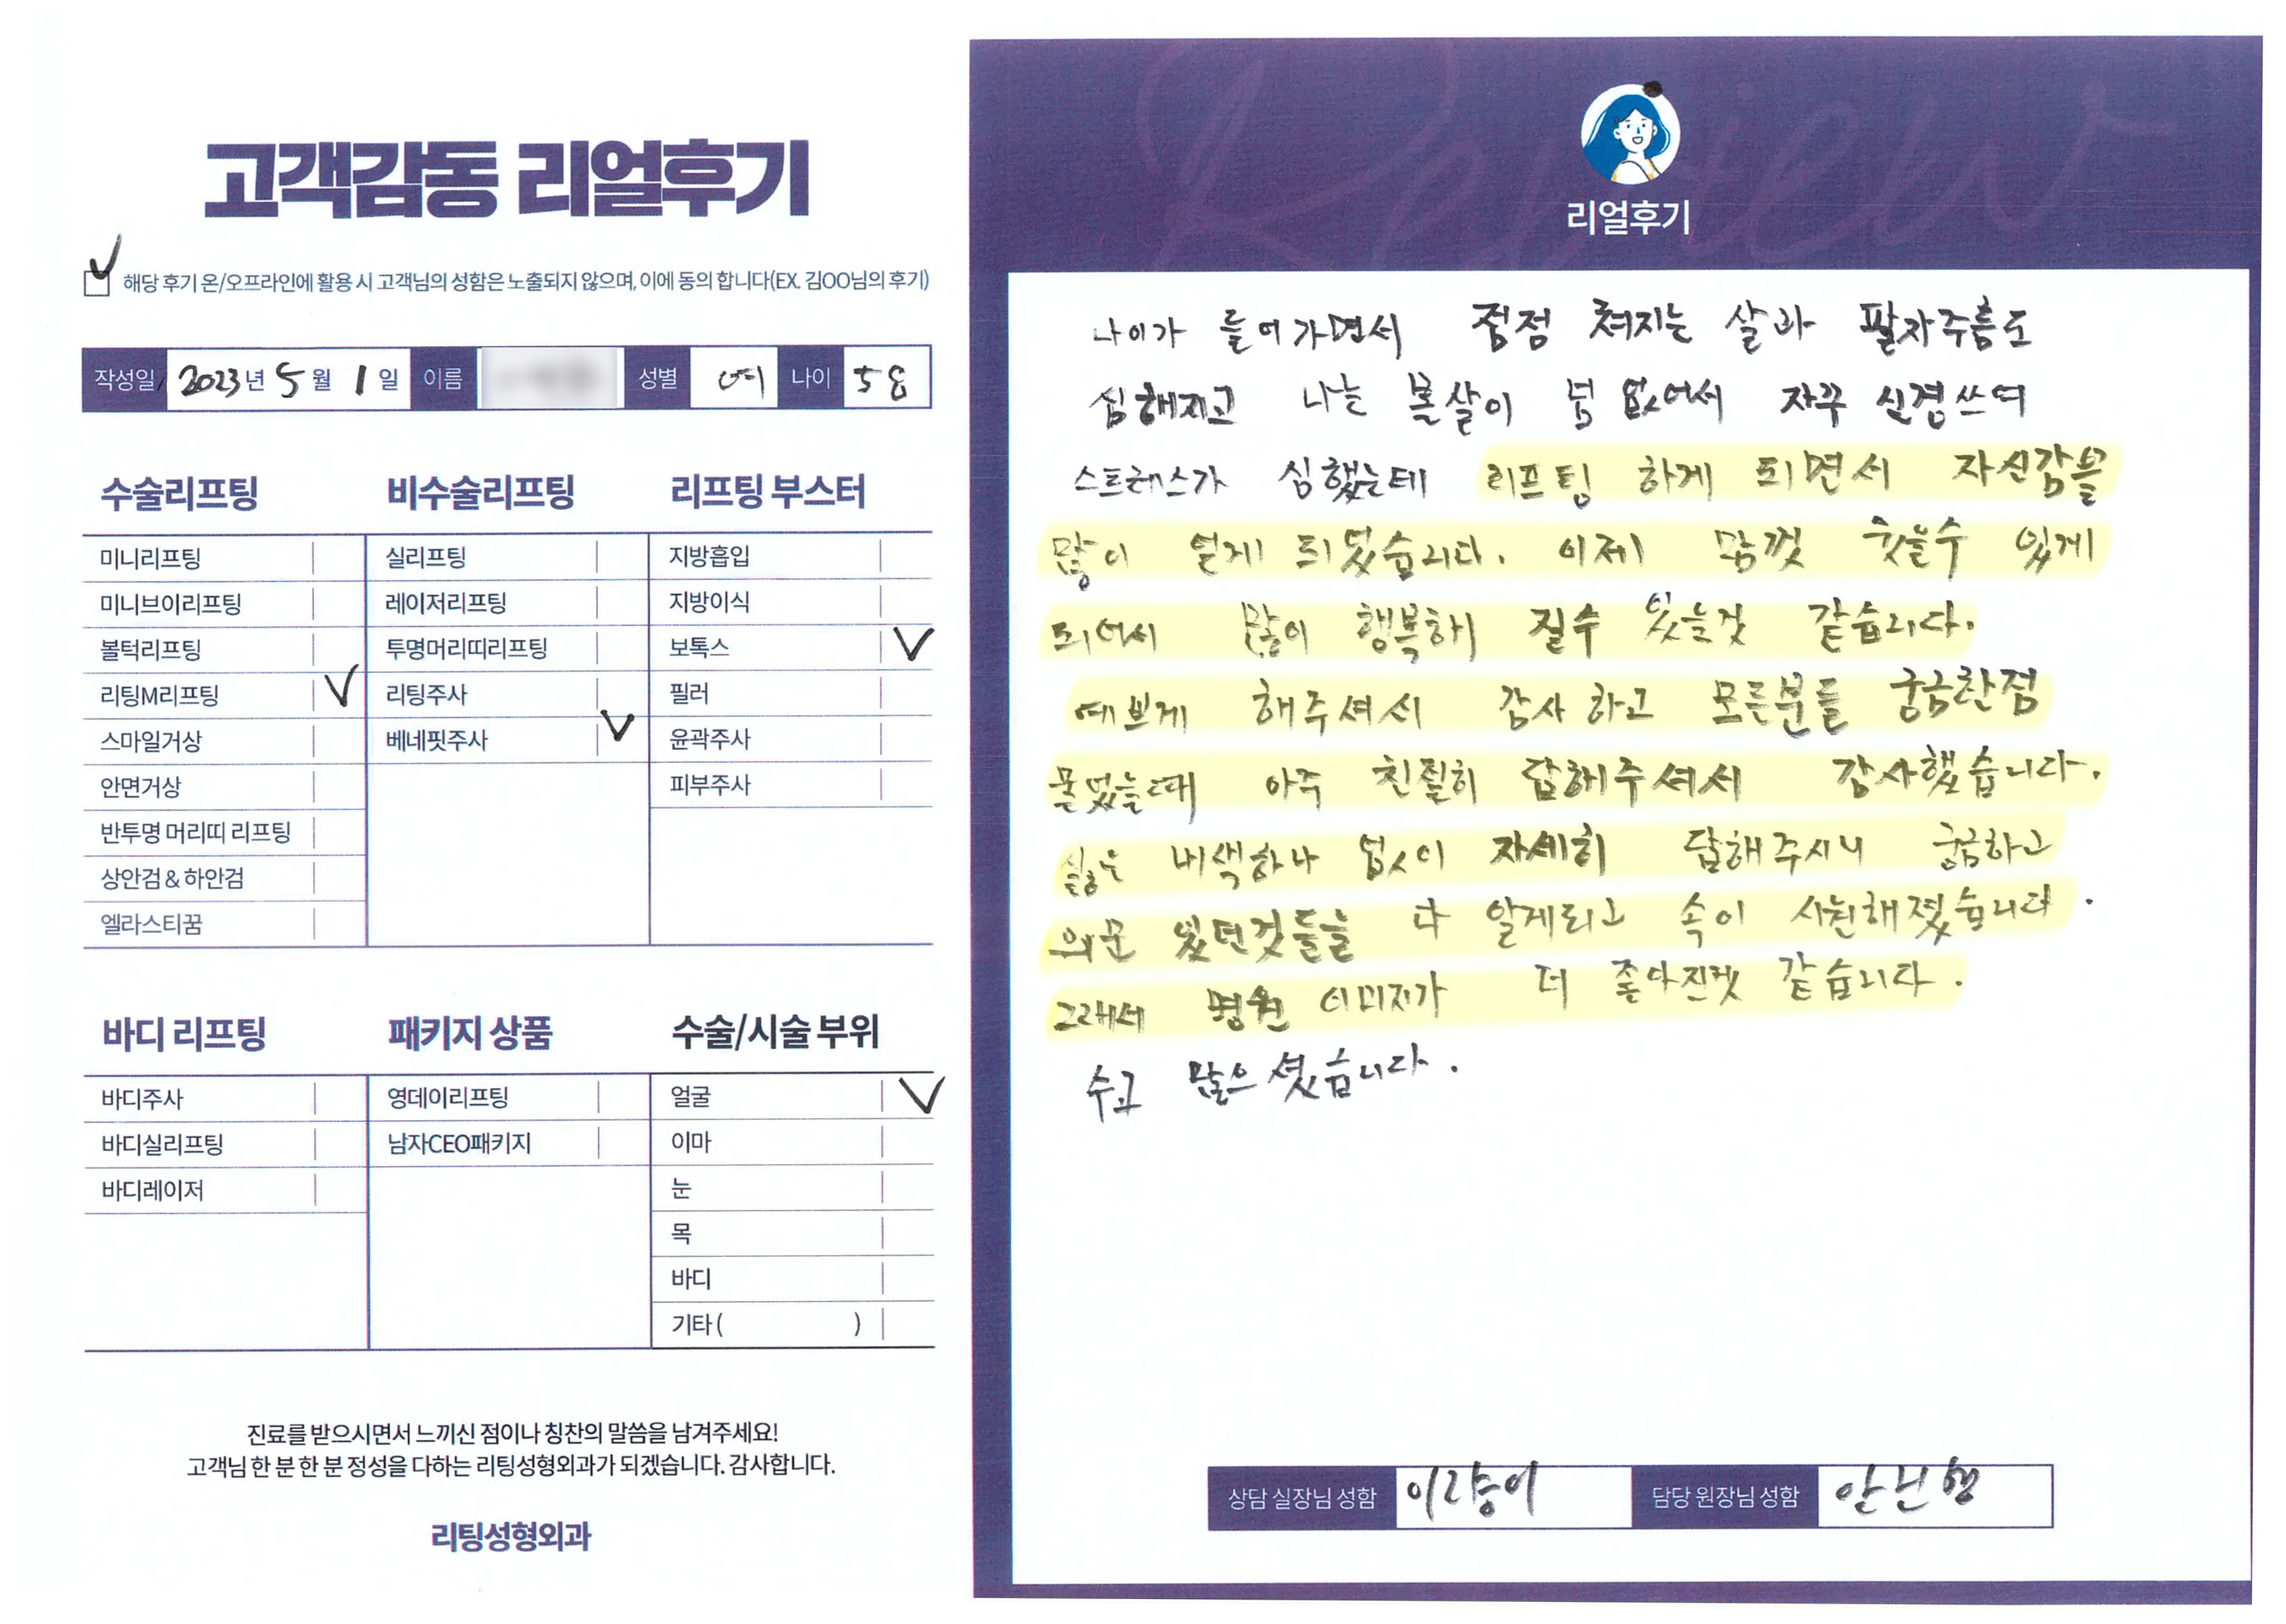 고객감동 리얼후기
해당 후기 온/오프라인에 활용 시 고객님의 성함은 노출되지 않으며, 이에 동의 합니다(EX. 김OO님의 후기)
작성일 2023년 5월 1일 이름 성별 여 나이 58
수술리프팅
미니리프팅
미니브이리프팅
볼턱리프팅
리팅M리프팅
스마일거상
안면거상
반투명 머리띠 리프팅
상안검 & 하안검
엘라스티꿈
비수술리프팅
실리프팅
레이저리프팅
투명머리띠리프팅
리팅주사
베네핏주사
리프팅 부스터
지방흡입
지방이식
보톡스
필러
윤곽주사
피부주사
바디 리프팅
바디주사
바디실리프팅
바디레이저
패키지 상품
영데이리프팅
남자CEO패키지
수술/시술 부위
얼굴
이마
눈
목
바디
기타 ( )
진료를 받으시면서 느끼신 점이나 칭찬의 말씀을 남겨주세요!
고객님 한 분 한 분 정성을 다하는 리팅성형외과가 되겠습니다. 감사합니다.
리팅성형외과
Review
리얼후기
나이가 들어가면서 점점 쳐지는 살과 팔자주름도
심해지고 나는 볼살이 넘 없어서 자꾸 신경쓰여
스트레스가 심했는데 리프팅 하게 되면서 자신감을
많이 얻게 되었습니다. 이제 맘껏 웃을수 있게
되어서 많이 행복해 질수 있을것 같습니다.
예쁘게 해주셔서 감사 하고 모른분들 궁금한점
물었을때 아주 친절히 답해주셔서 감사했습니다.
싫은 내색하나 없이 자세히 답해주시니 궁금하고
의문 있던것들을 다 알게되고 속이 시원해졌습니다.
그래서 병원 이미지가 더 좋아진것 같습니다.
수고 많으셨습니다.
상담 실장님 성함 담당 원장님 성함